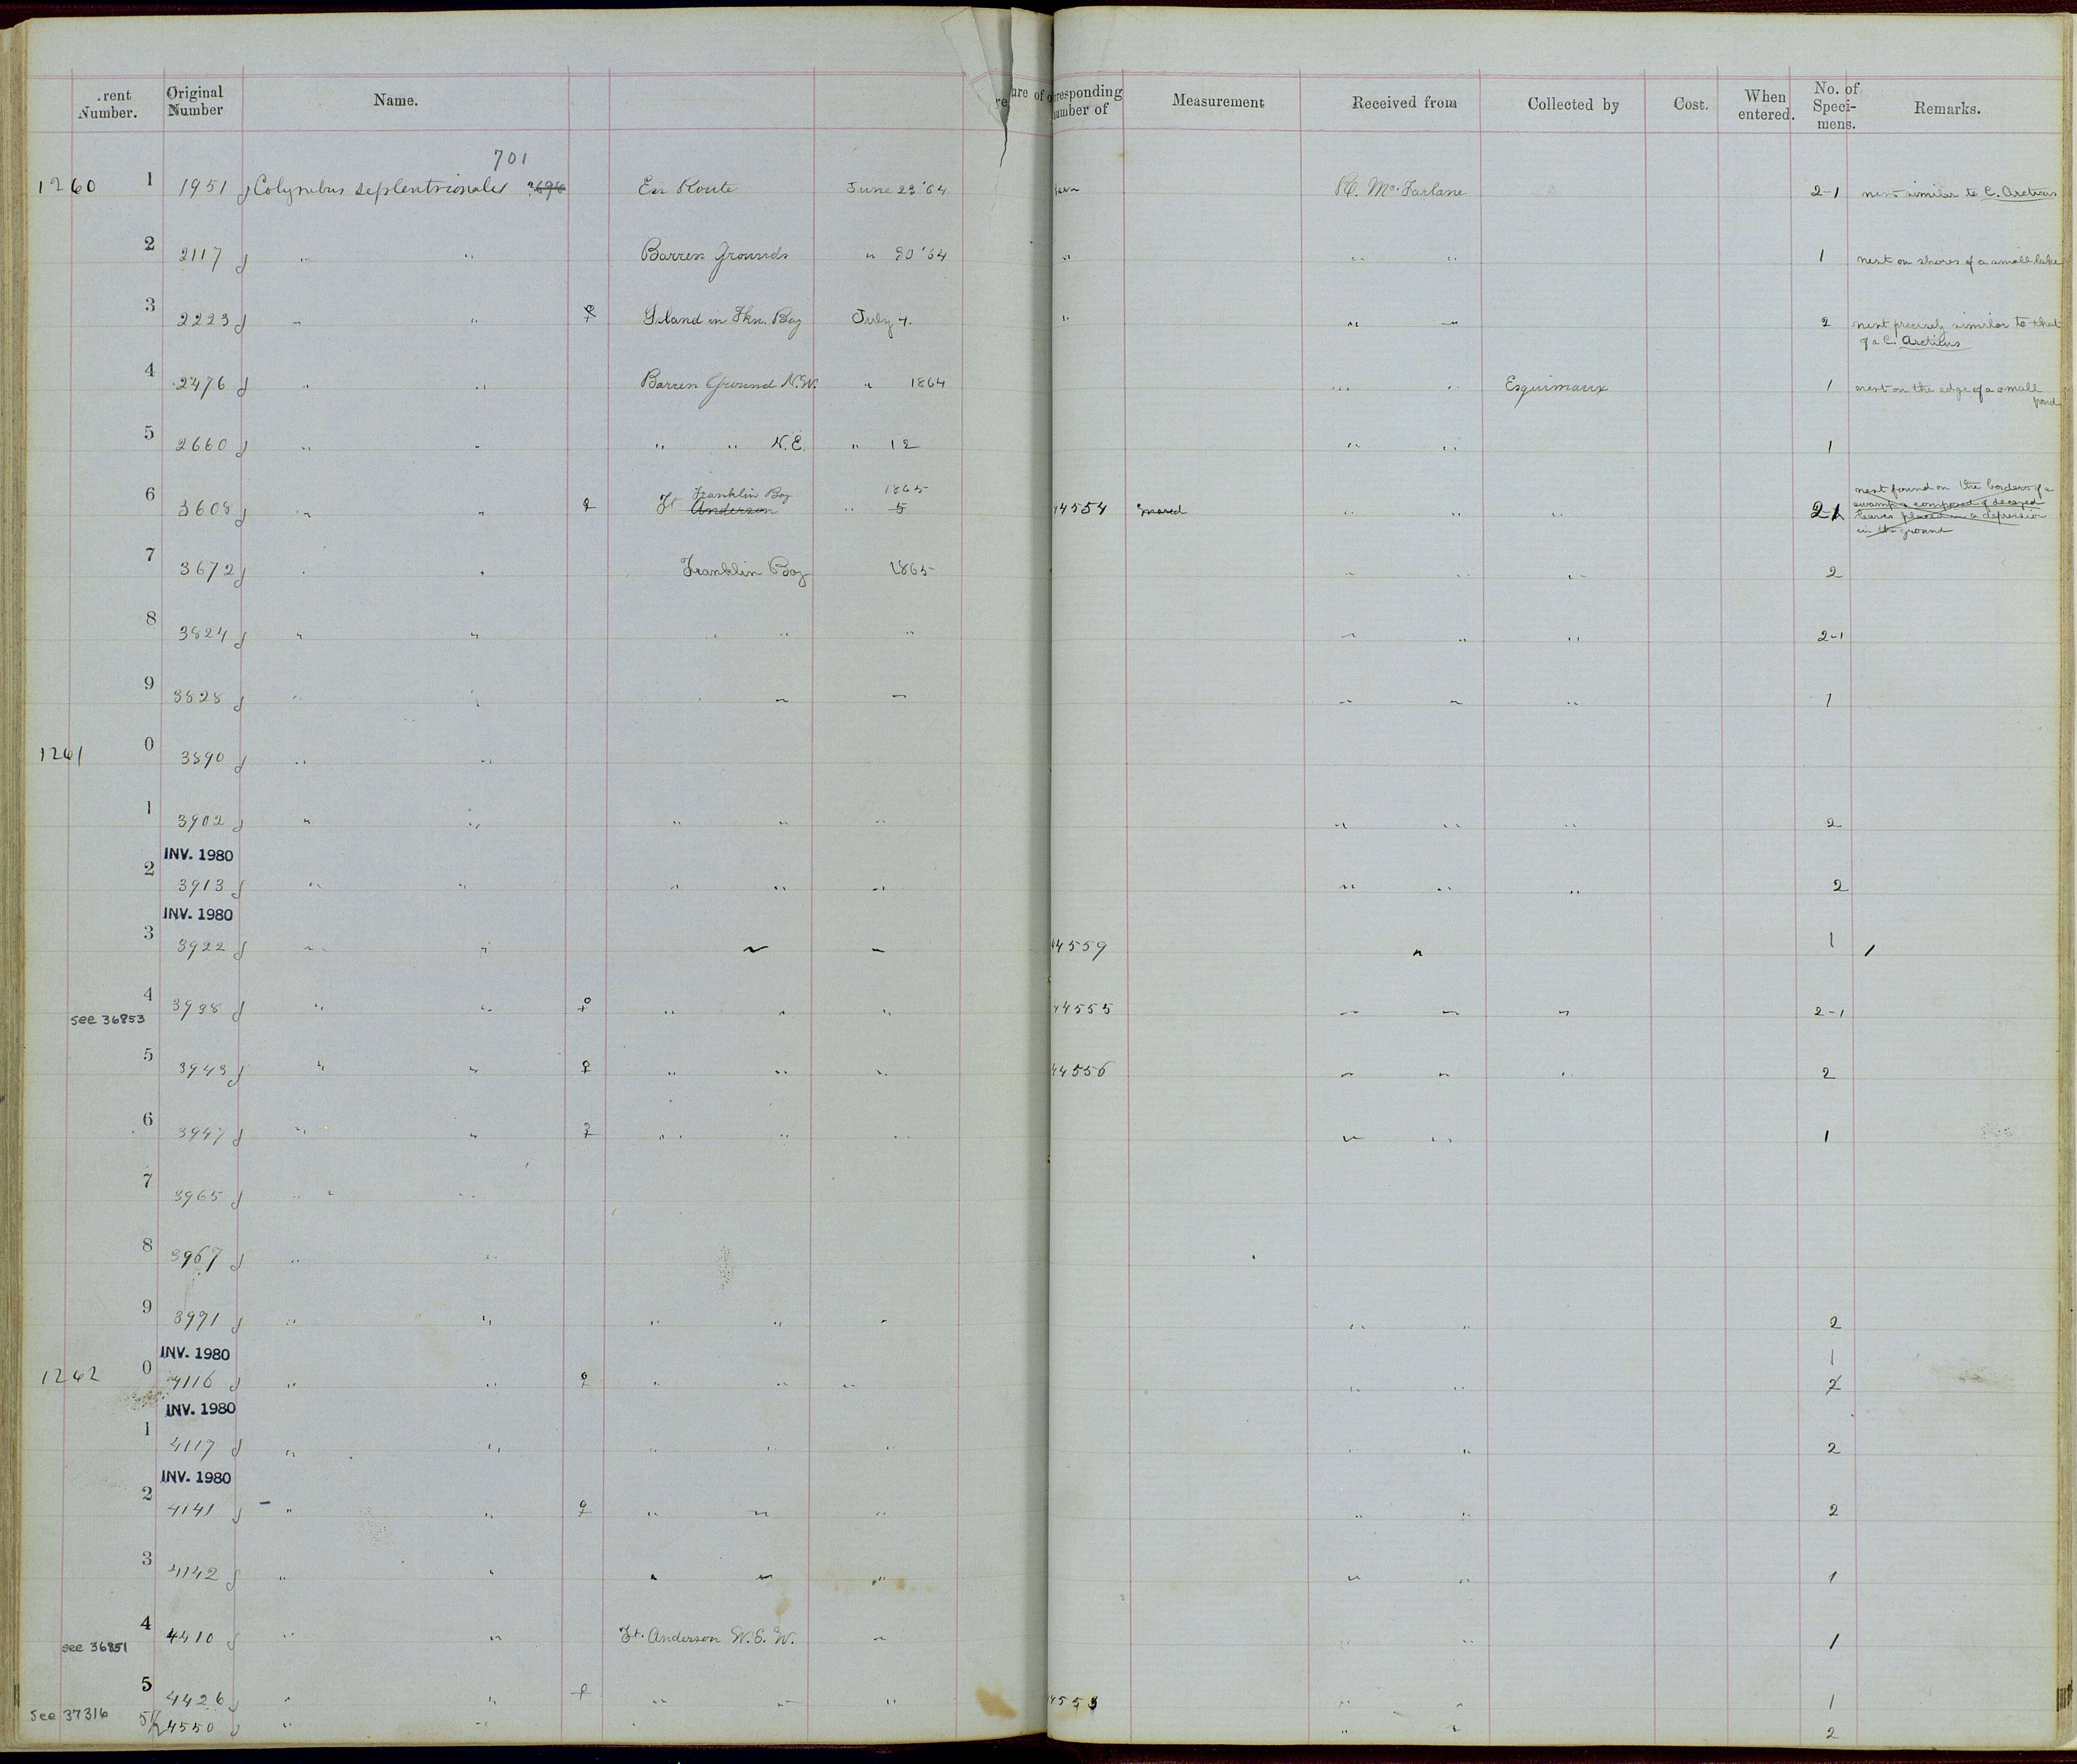 .rent Number. Original Number Name. ure of corresponding number of Measurement Received from Collected by Cost. When entered. No. of Speci- mens. Remarks.
701
1260 1 1951 Colymbus septentrionalis 698 En Route June 23 '64 R. McFarlane 2-1 nest similar to C. Arcticus
2 2117 " " Barren Grounds " 30 '64 " " " 1 nest on shores of a small lake
3 2223 " " ♀ Island in Fkn. Bay July 4. " " " 2 nest precisely similar to that
of a C. Arcticus
4 2476 " " Barren Ground N.W. " 1864 " " Esquimaux 1 nest on the edge of a small
pond
5 2660 " " " " N.E. " 12 " " 1
Franklin Bay 1865 nest found on the borders of a
6 3608 " " ♀ Ft Anderson " 5 44554 Snared " " " 2-1 swamp & composed of decayed
leaves placed in a depression
in the ground
7 3672 " " Franklin Bay 1865 " " " 2
8 3824 " " " " " " " " 2-1
9 3828 " " " " " " " " 1
1261 0 3890 " "
1 3902 " " " " " " " " 2
INV. 1980
2 3913 " " " " " " " " 2
INV. 1980
3 3922 " " " " 44559 " 1
4 3938 " " ♀ " " " 44555 " " " 2-1
see 36853
5 3943 " " ♀ " " " 44556 " " " 2
6 3947 " " ♀ " " " " " 1
7 3965 " "
8 3967 " "
9 3991 " " " " " " " 2
INV. 1980 1
1262 0 4116 " " ♀ " " " " " 2
INV. 1980
1 4117 " " " " " " " 2
INV. 1980
2 4141 " " ♀ " " " " " 2
3 4142 " " " " " " " 1
4 4410 " " Ft. Anderson " " " 1
see 36851
5 4426 " " ♀ " " " " " 1
see 37316 5½ 4550 " " " " 2